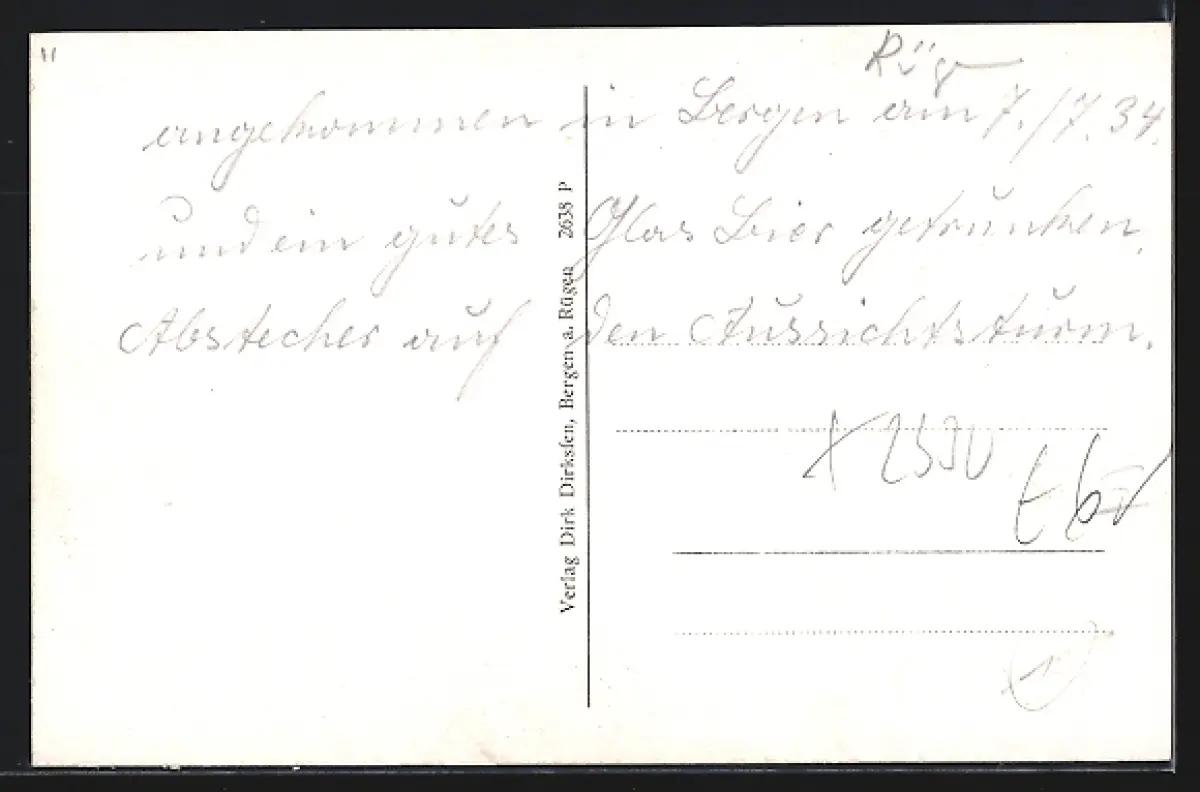 Rüg
angekommen in Bergen am 7./7.34.
und ein gutes Glas Bier getrunken,
Abstecher auf den Aussichtsturm.
Verlag Dirk Dirksen, Bergen a. Rügen 2638 P